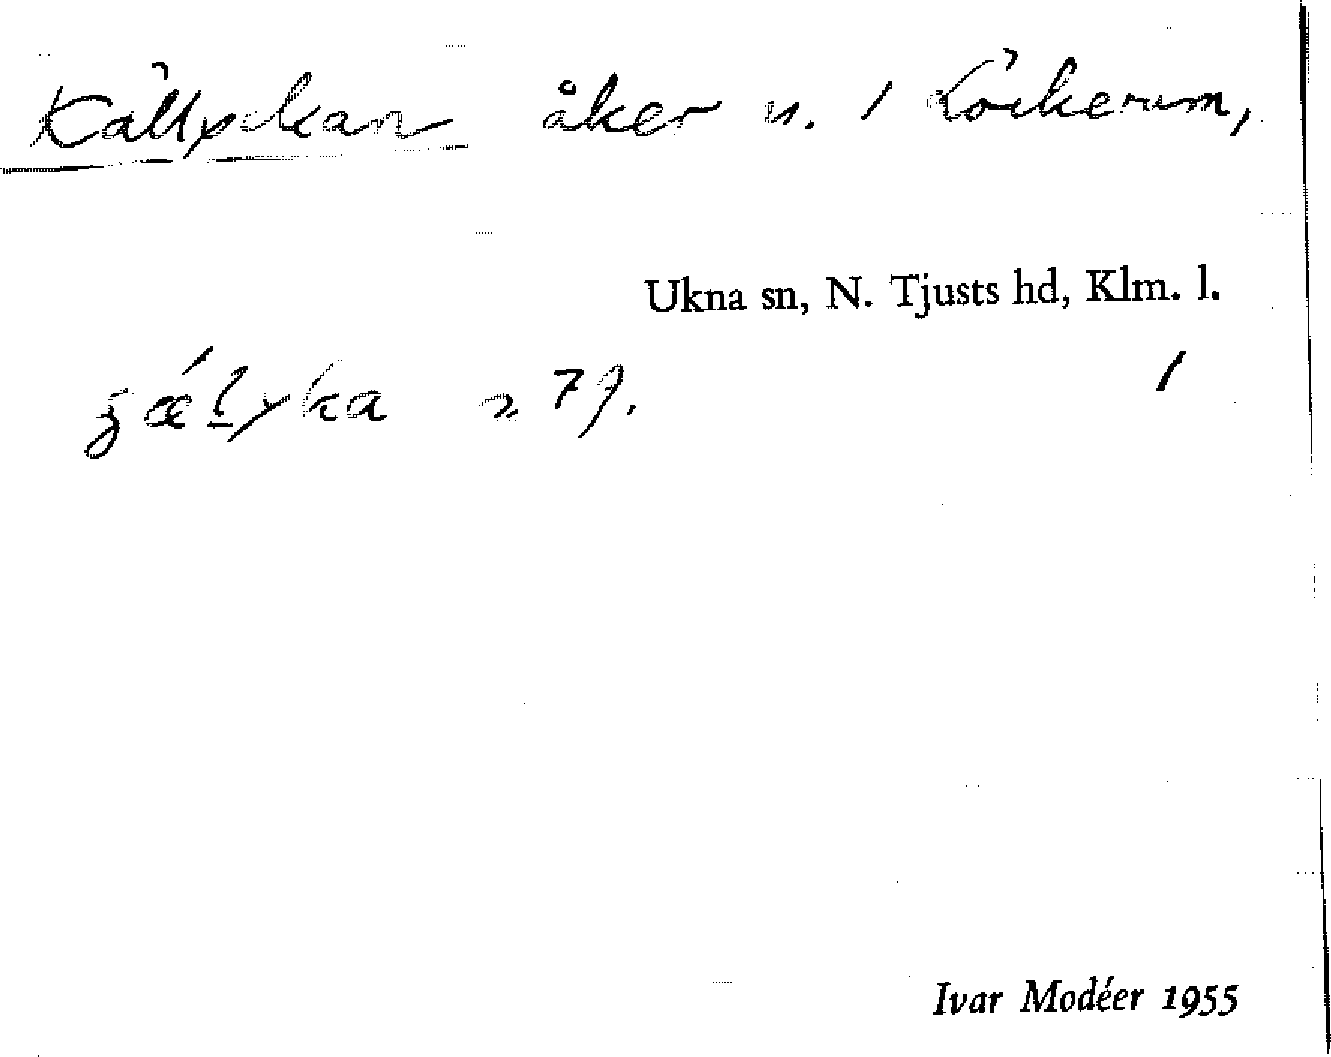 Källyckan åker u. 1 Löckerum,
Ukna sn, N. Tjusts hd, Klm. l.
1
Ivar Modéer 1955